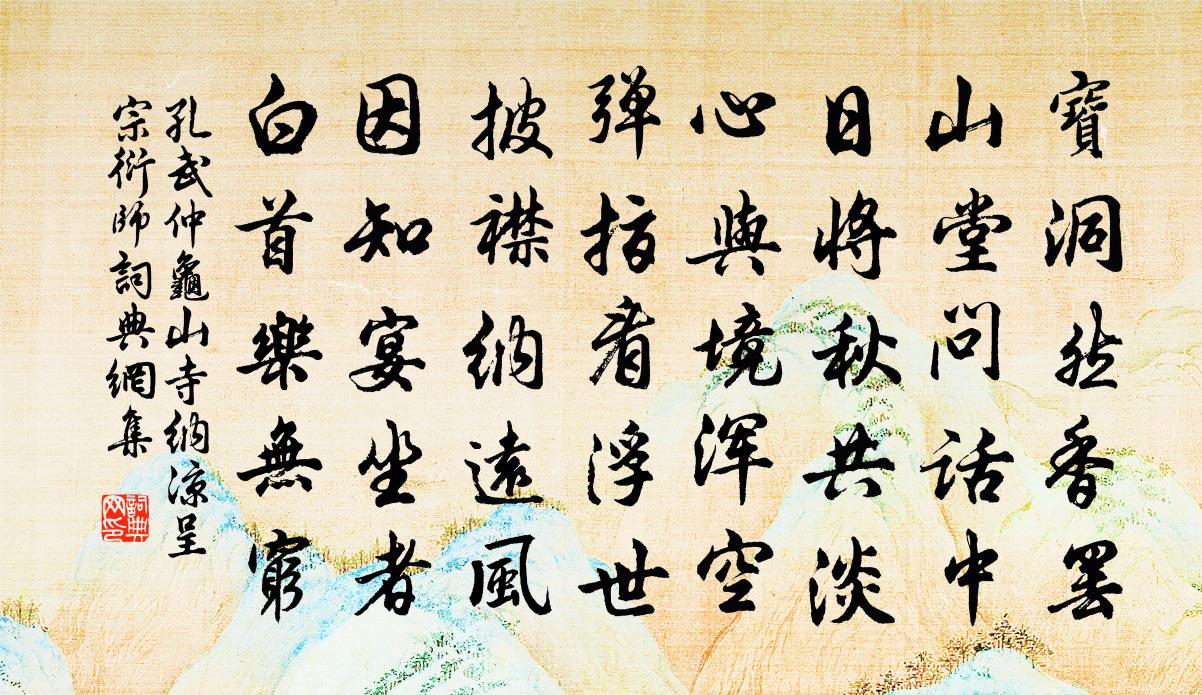 寶洞然香罷
山堂問話中
日將秋共淡
心與境渾空
弹指看浮世
披襟納遠風
因知宴坐者
白首樂無窮
孔武仲龜山寺納凉呈
宗衍師詞典網集
詞典
网印